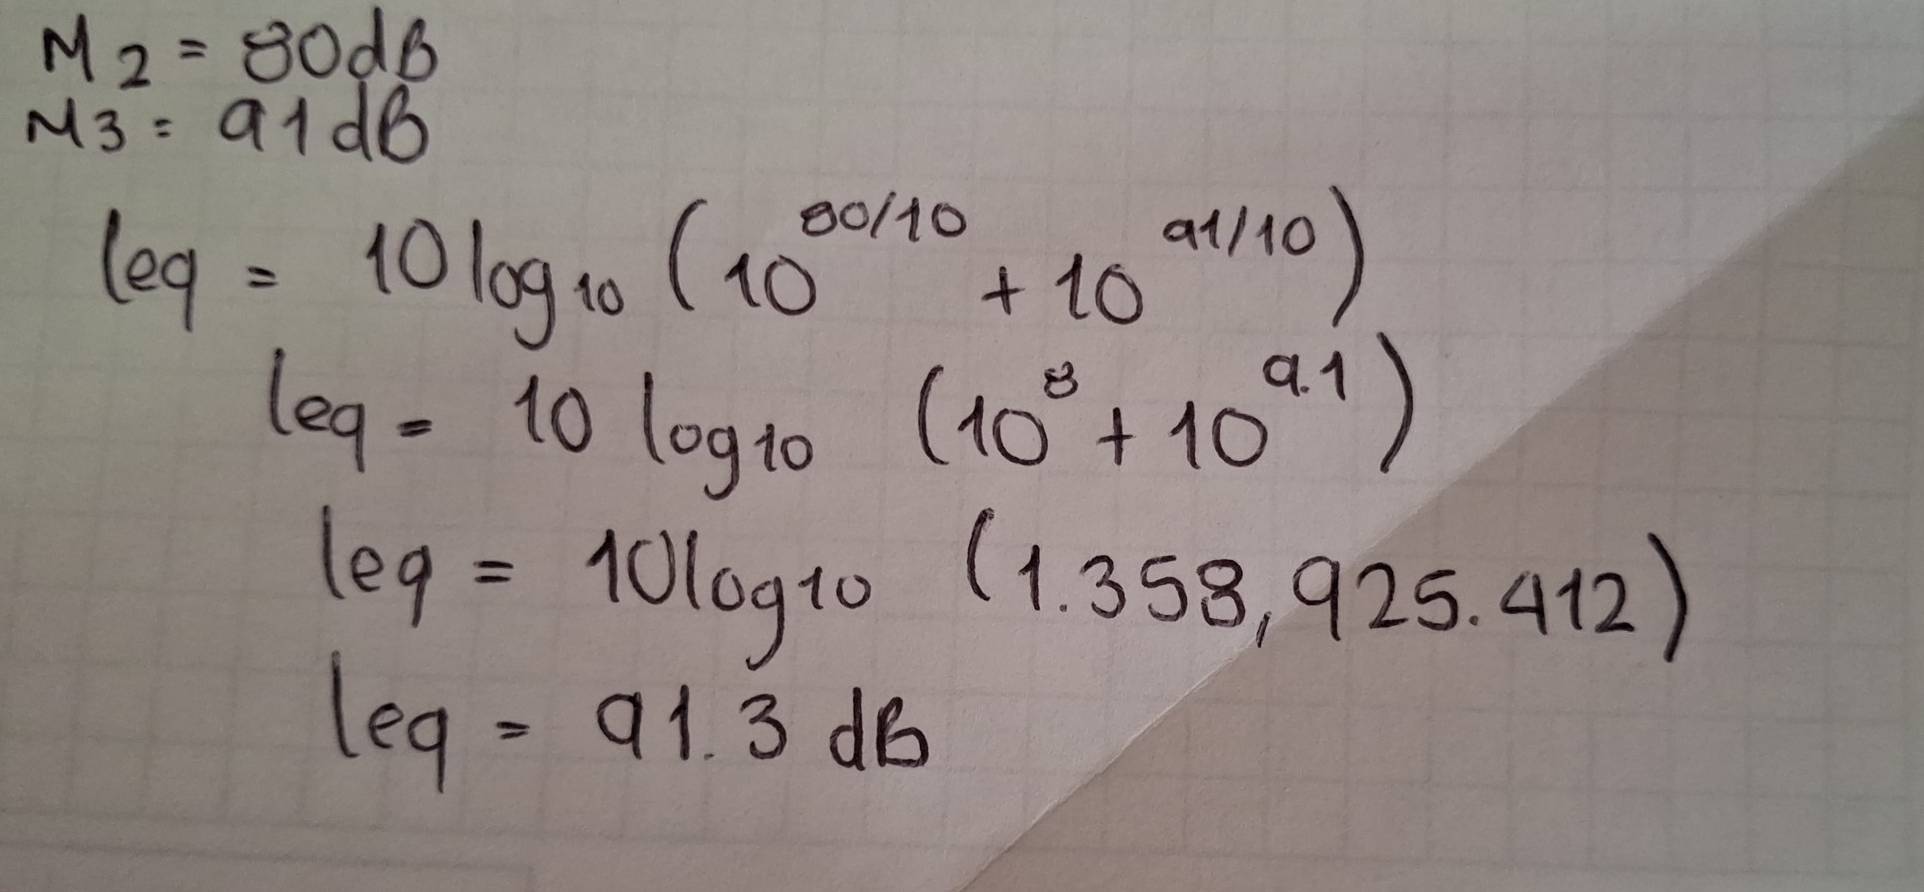 M2 = 80dB
M3 = 91dB
leq = 10 log10 (10^80/10 + 10^91/10)
leq = 10 log10 (10^8 + 10^9.1)
leq = 10log10 (1.358,925.412)
leq = 91.3 dB